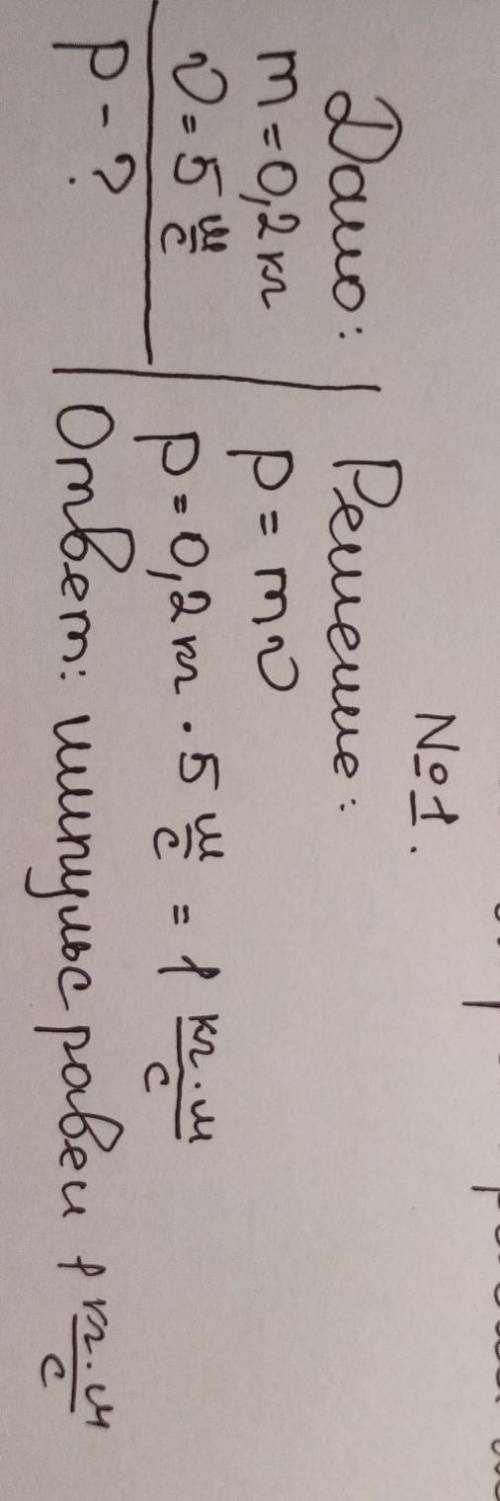 №1.
Дано:
m = 0,2 кг
υ = 5 м/с
p - ?
Решение:
p = mυ
p = 0,2 кг · 5 м/с = 1 кг·м/с
Ответ: импульс равен 1 кг·м/с